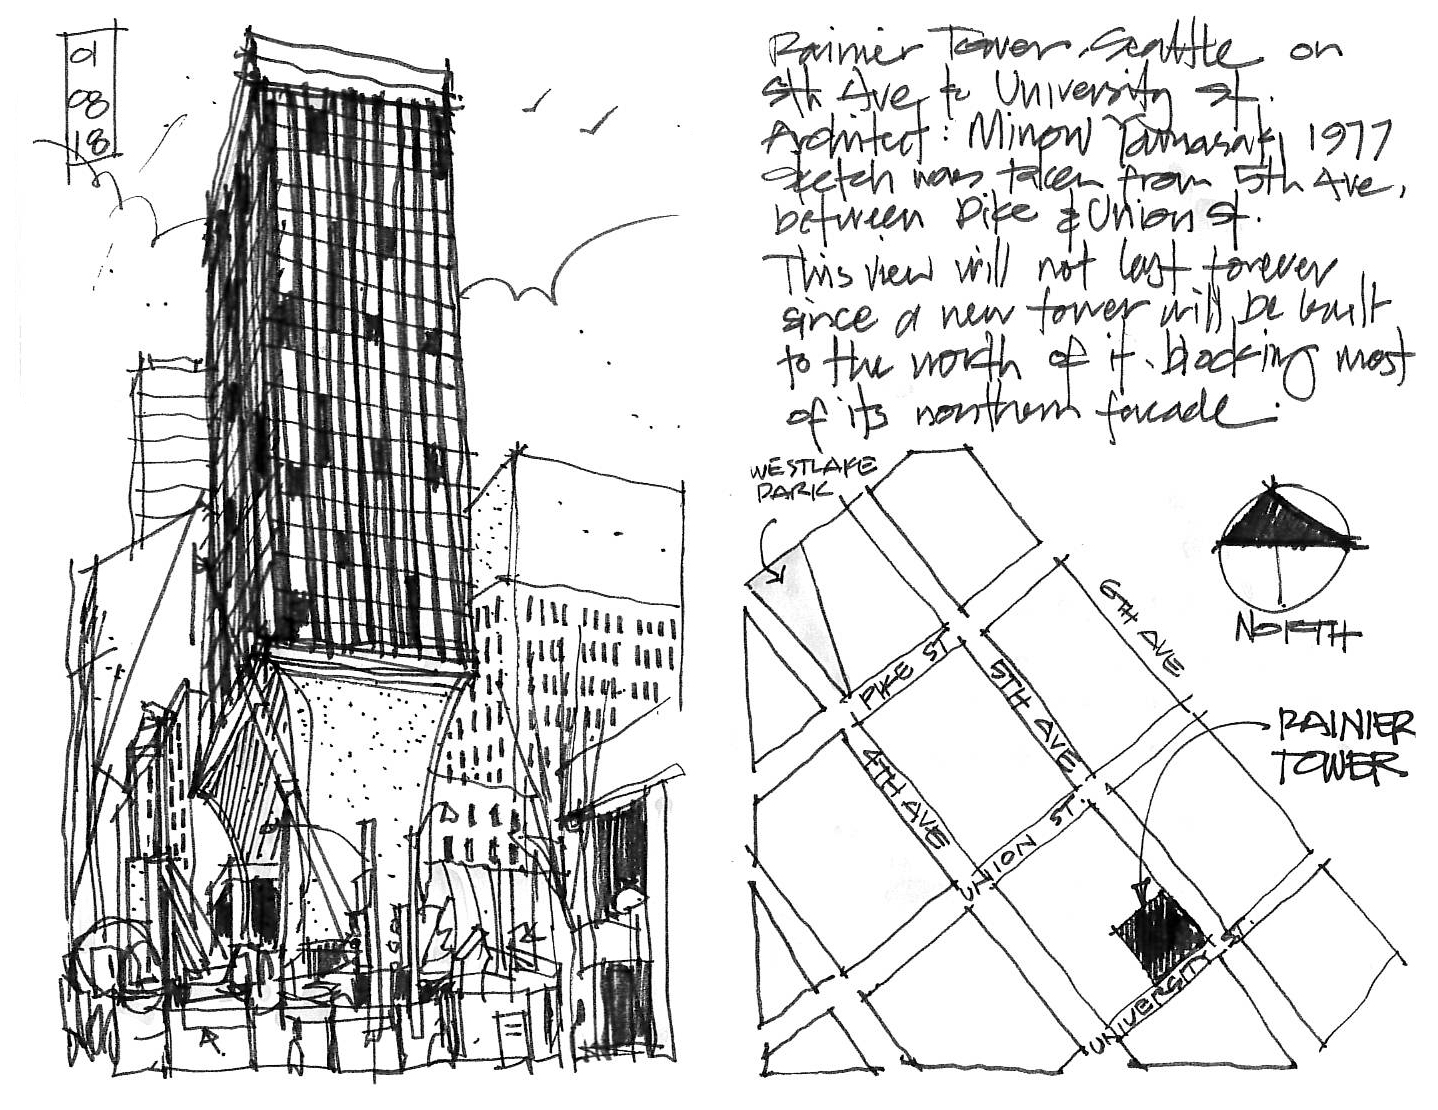 01
08
18
Rainier Tower, Seattle on
5th Ave & University St.
Architect: Minoru Yamasaki, 1977
Sketch was taken from 5th Ave,
between Pike & Union St.
This view will not last forever
since a new tower will be built
to the north of it, blocking most
of its northern facade.
WESTLAKE
PARK
6TH AVE
NORTH
PIKE ST.
5TH AVE
RAINIER
TOWER
4TH AVE
UNION ST.
UNIVERSITY ST.